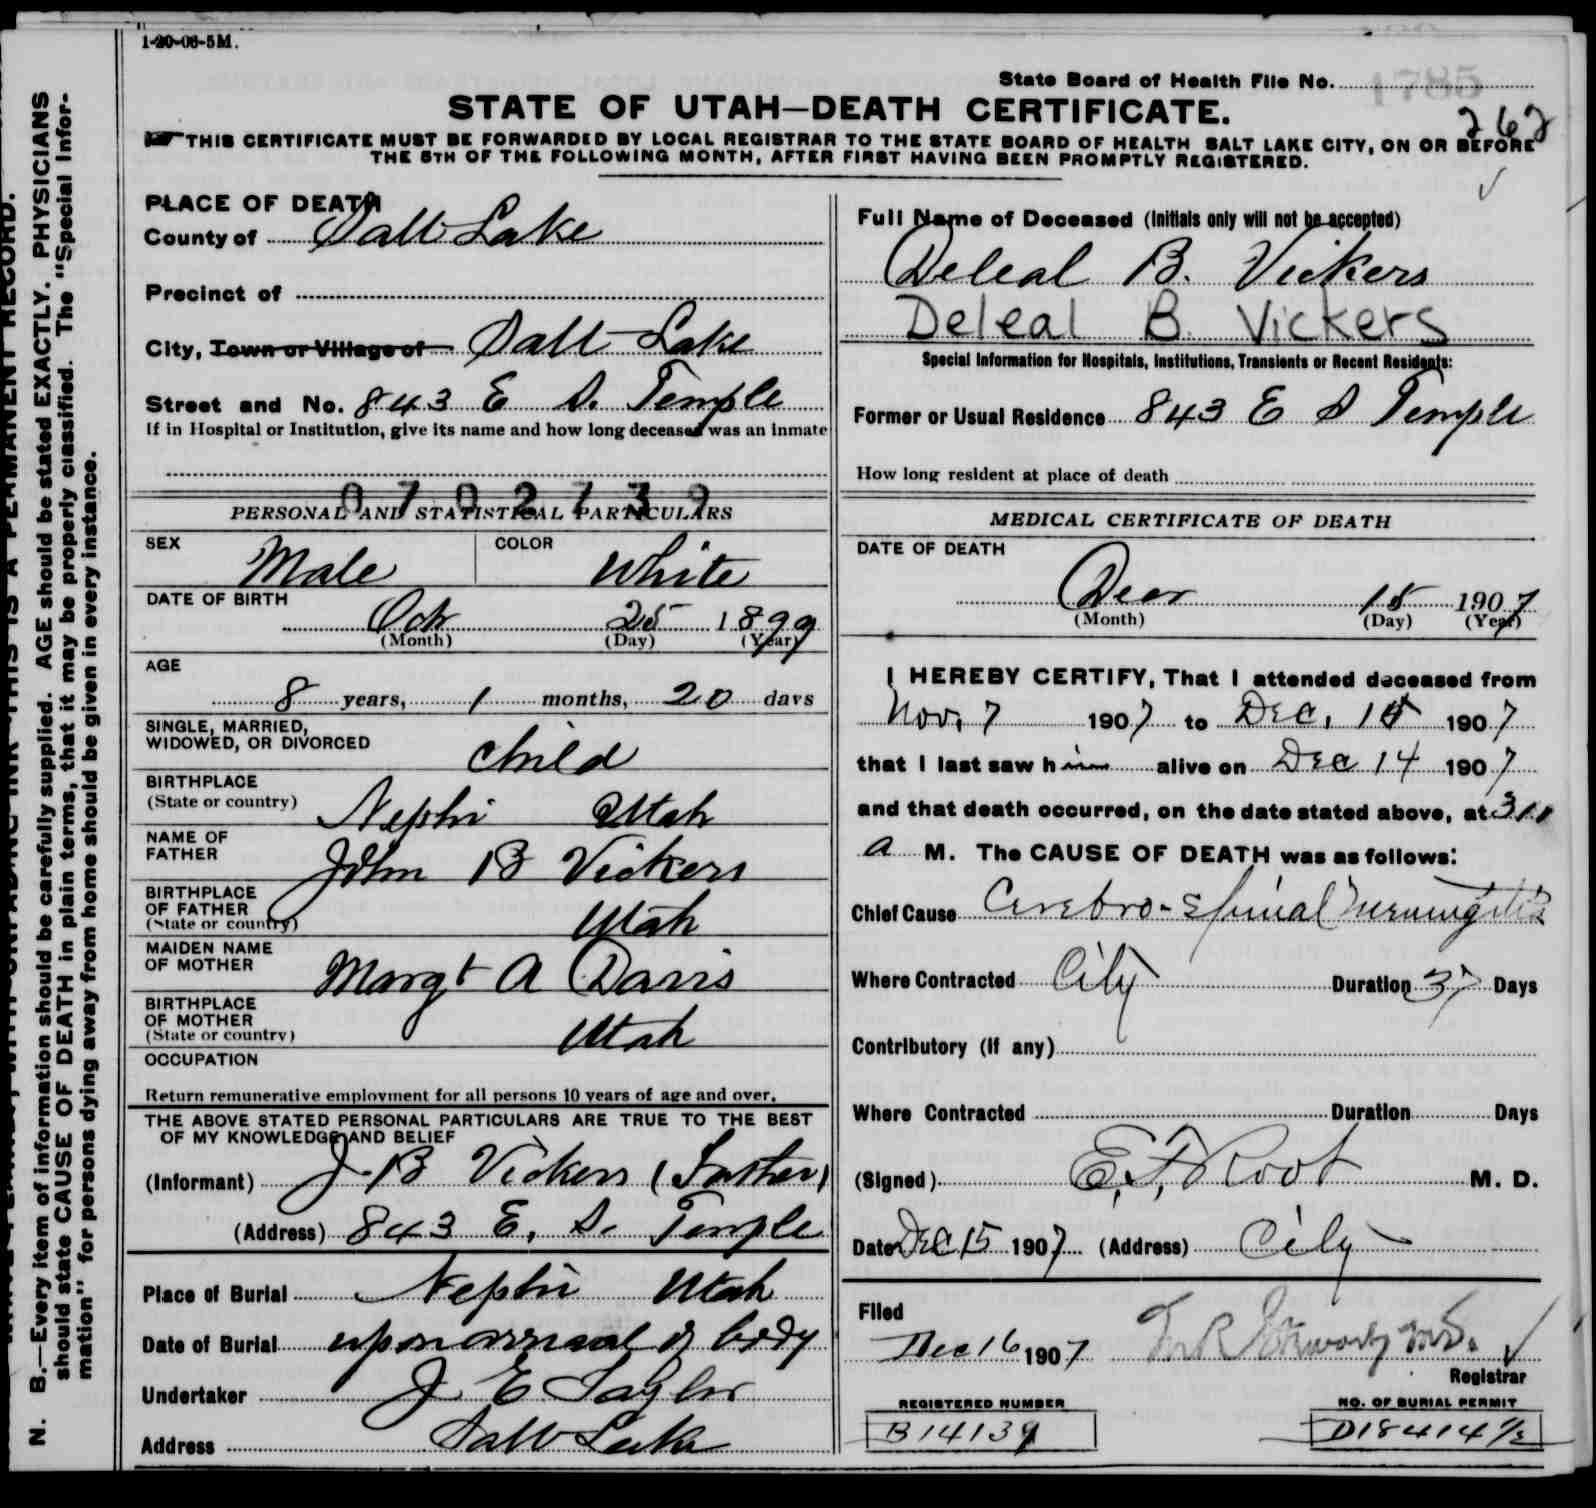 1-20-06-5M.
State Board of Health File No. 1785
STATE OF UTAH—DEATH CERTIFICATE.
262
THIS CERTIFICATE MUST BE FORWARDED BY LOCAL REGISTRAR TO THE STATE BOARD OF HEALTH SALT LAKE CITY, ON OR BEFORE
THE 5TH OF THE FOLLOWING MONTH, AFTER FIRST HAVING BEEN PROMPTLY REGISTERED.
PLACE OF DEATH
County of Salt Lake
Precinct of
City, Town or Village of Salt Lake
Street and No. 843 E S. Temple
If in Hospital or Institution, give its name and how long deceased was an inmate
0702739
PERSONAL AND STATISTICAL PARTICULARS
SEX Male COLOR White
DATE OF BIRTH
Oct 25 1899
(Month) (Day) (Year)
AGE
8 years, 1 months, 20 days
SINGLE, MARRIED,
WIDOWED, OR DIVORCED child
BIRTHPLACE
(State or country) Nephi Utah
NAME OF
FATHER John B Vickers
BIRTHPLACE
OF FATHER
(State or country) Utah
MAIDEN NAME
OF MOTHER Margt A Davis
BIRTHPLACE
OF MOTHER
(State or country) Utah
OCCUPATION
Return remunerative employment for all persons 10 years of age and over.
THE ABOVE STATED PERSONAL PARTICULARS ARE TRUE TO THE BEST
OF MY KNOWLEDGE AND BELIEF
(Informant) J. B Vickers (Father)
(Address) 843 E. S. Temple
Place of Burial Nephi Utah
Date of Burial upon arrival of body
Undertaker J E Taylor
Address Salt Lake
Full Name of Deceased (Initials only will not be accepted)
Deleal B. Vickers
Deleal B Vickers
Special Information for Hospitals, Institutions, Transients or Recent Residents:
Former or Usual Residence 843 E S Temple
How long resident at place of death
MEDICAL CERTIFICATE OF DEATH
DATE OF DEATH
Decr 15 1907
(Month) (Day) (Year)
I HEREBY CERTIFY, That I attended deceased from
Nov. 7 1907 to Dec. 15 1907
that I last saw him alive on Dec 14 1907
and that death occurred, on the date stated above, at
a M. The CAUSE OF DEATH was as follows:
Chief Cause Cerebro-spinal meningitis
Where Contracted City Duration 37 Days
Contributory (if any)
Where Contracted Duration Days
(Signed) E. F. Root M. D.
Date Dec 15 1907 (Address) City
Filed
Dec 16 1907
Registrar
REGISTERED NUMBER
B14139
NO. OF BURIAL PERMIT
D18414 1/2
N. B.—Every item of information should be carefully supplied. AGE should be stated EXACTLY. PHYSICIANS
should state CAUSE OF DEATH in plain terms, that it may be properly classified. The "Special Infor-
mation" for persons dying away from home should be given in every instance.